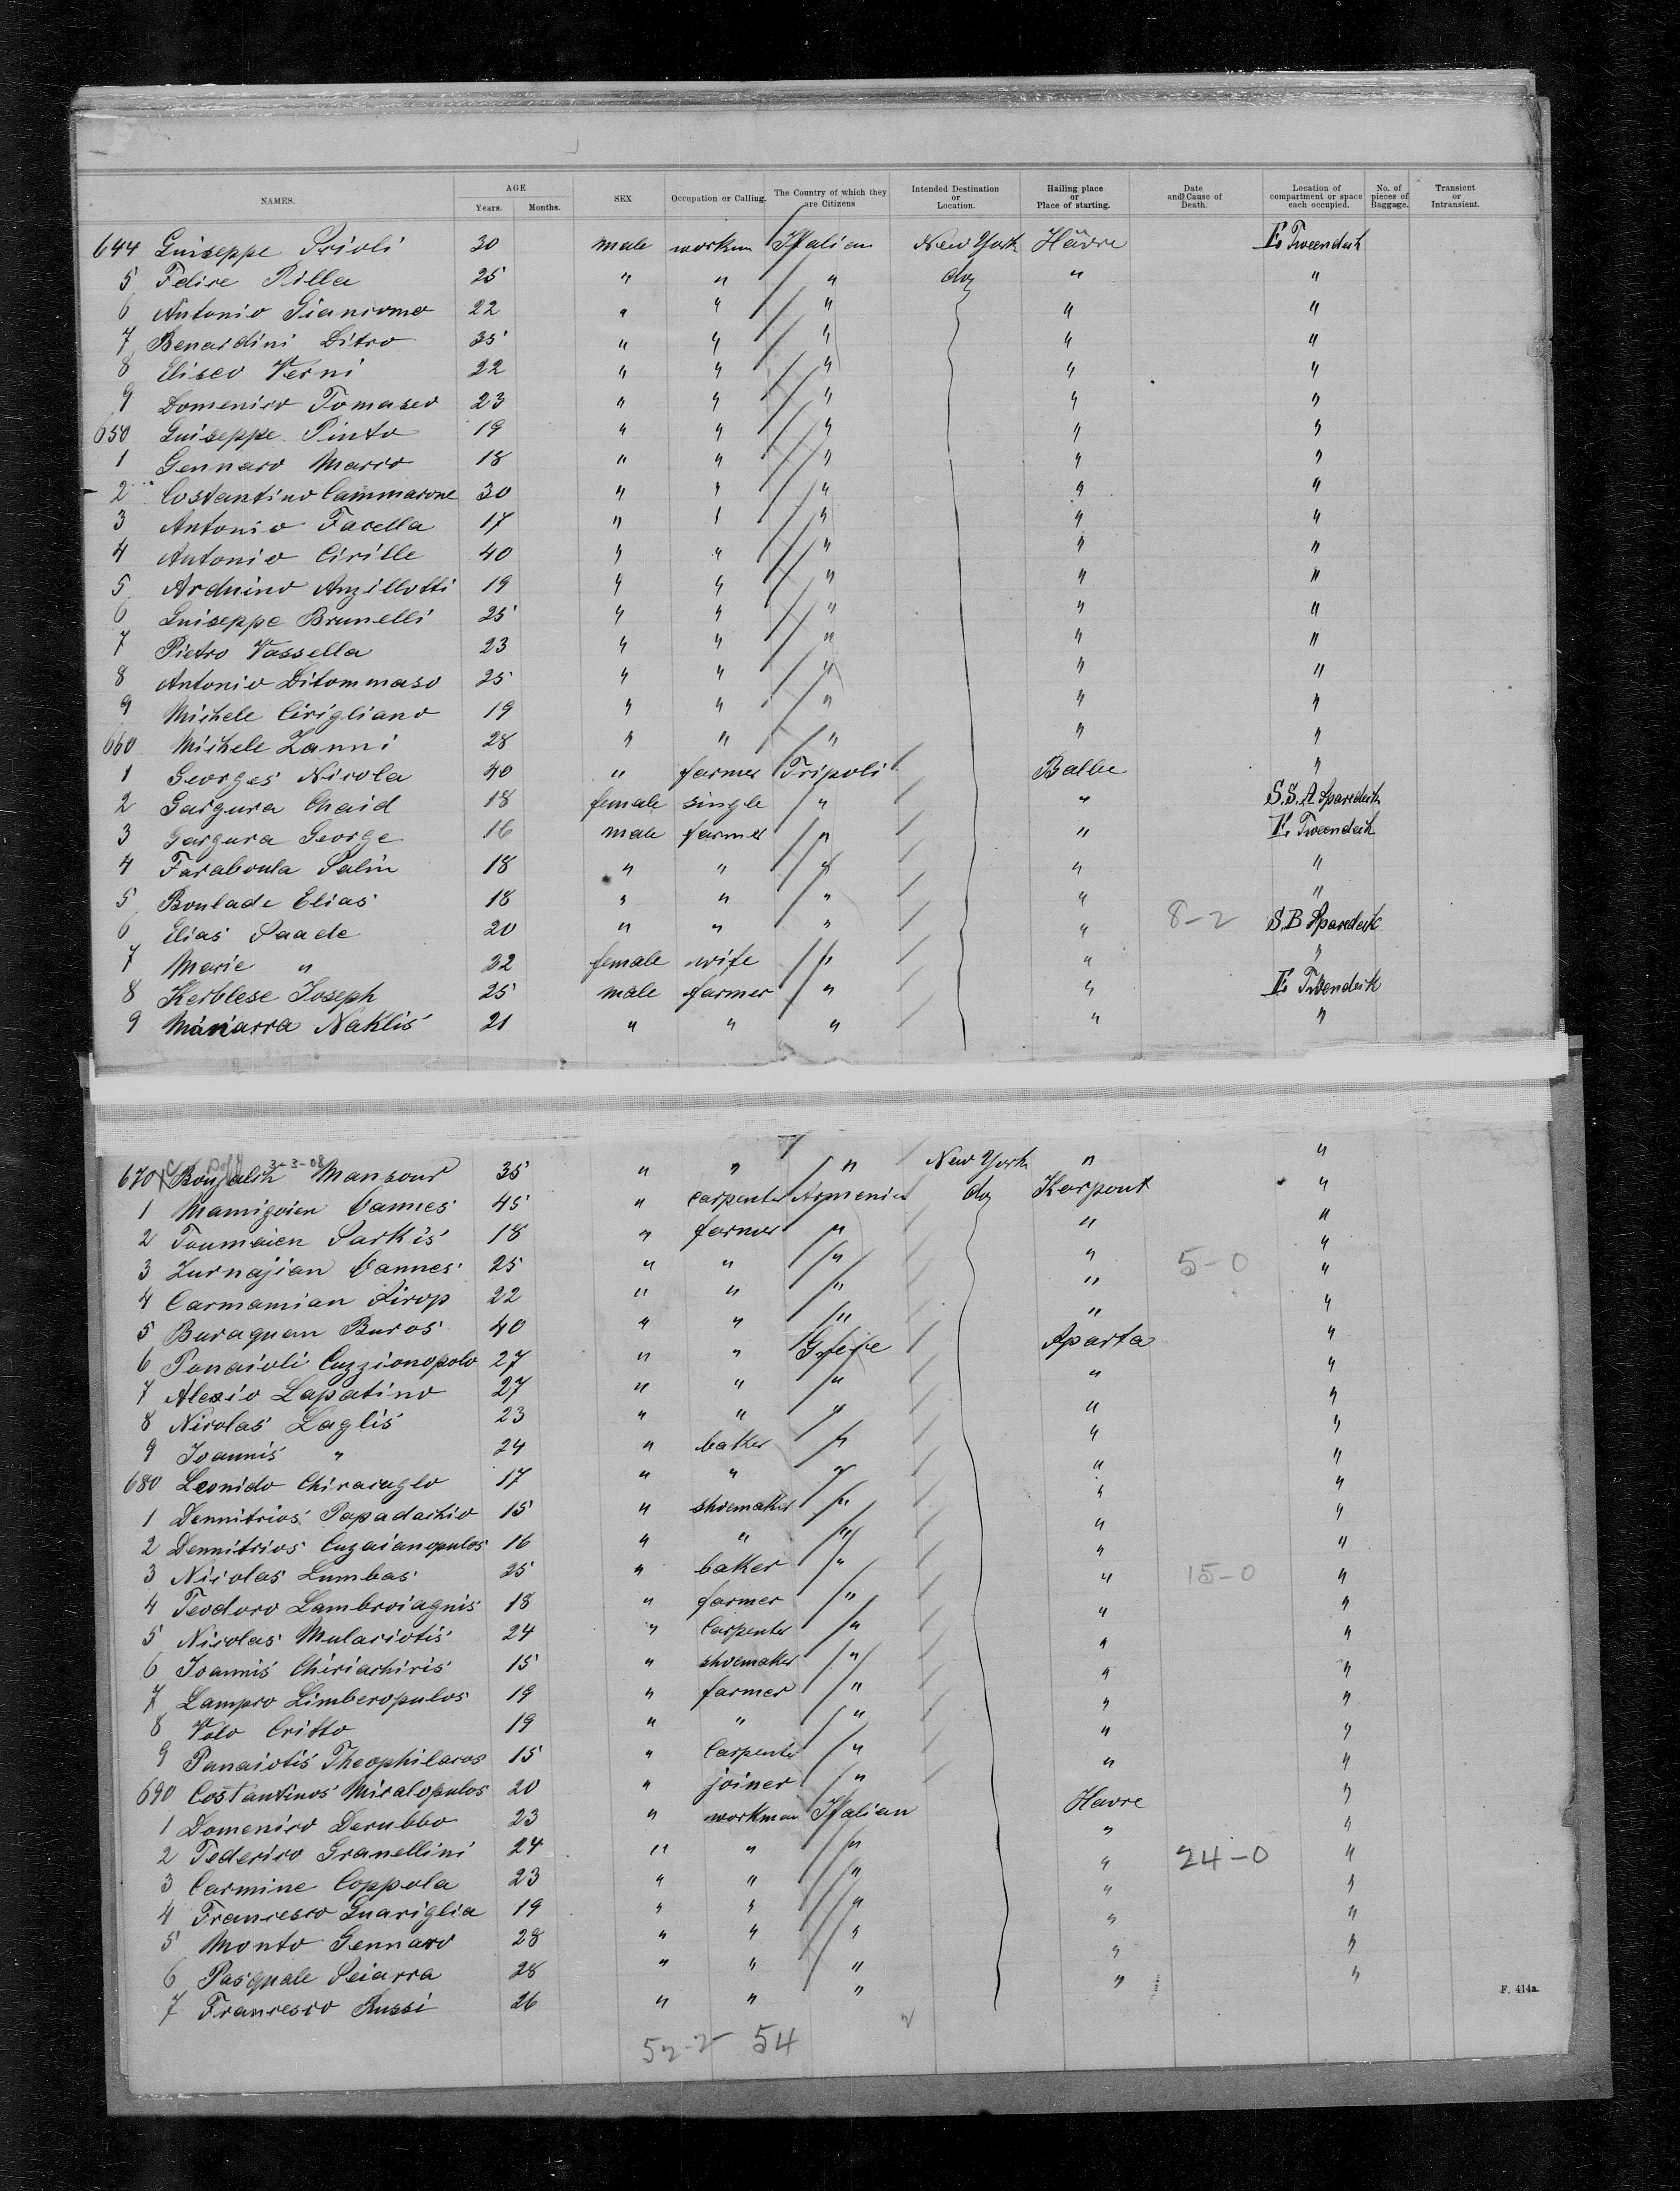 NAMES. AGE SEX Occupation or Calling. The Country of which they are Citizens Intended Destination or Location. Hailing place or Place of starting. Date and Cause of Death. Location of compartment or space each occupied. No. of pieces of Baggage. Transient or Intransient.
Years. Months.
644 Guiseppe Prioli 30 male workm Italian New York Hâvre E. Tweendeck
5 Felice Pilla 25 " " " do " "
6 Antonio Giancomo 22 " " " " "
7 Benardini Ditro 35 " " " " "
8 Eliseo Verni 22 " " " " "
9 Domenico Tomaseo 23 " " " " "
650 Guiseppe Pinto 19 " " " " "
1 Gennaro Marro 18 " " " " "
2 Costantino Cammarone 30 " " " " "
3 Antonio Facella 17 " " " " "
4 Antonio Cirille 40 " " " " "
5 Arduino Anzillotti 19 " " " " "
6 Guiseppe Brunelli 25 " " " " "
7 Pietro Vassella 23 " " " " "
8 Antonio Ditommaso 25 " " " " "
9 Michele Cirigliano 19 " " " " "
660 Michele Zanni 28 " " " " "
1 Georges Nicola 40 " farmer Tripoli Balbe "
2 Gargura Chaid 18 female single " " S.S.A. Sparedeck
3 Gargura George 16 male farmer " " E. Tweendeck
4 Faraboula Salin 18 " " " " "
5 Boulade Elias 18 " " " " "
6 Elias Saade 20 " " " " 8-2 S.B Sparedeck
7 Marie " 22 female wife " " "
8 Kerblese Joseph 25 male farmer " " E. Tweendeck
9 Manarra Naklis 21 " " " " "
3-3-08
670 Bouzalih Mansour 35 " " " New York " "
1 Mamigoien Vannes 45 " carpenter Armenien do Karpout "
2 Toumaien Sarkis 18 " farmer " " "
3 Zurnajian Vannes 25 " " " " 5-0 "
4 Carmamian Sirop 22 " " " " "
5 Buraguan Buros 40 " " " " "
6 Panaioli Cuzzionopolo 27 " " Grece Sparta "
7 Alexio Lapatino 27 " " " " "
8 Nicolas Laglis 23 " " " " "
9 Ioannis " 24 " baker " " "
680 Leonido Chiracuglo 17 " " " " "
1 Dennitrios Papadachio 15 " shoemaker " " "
2 Dennitrios Cuzaianopulos 16 " " " " "
3 Nicolas Lumbas 25 " baker " " 15-0 "
4 Teodoro Lambroiagnis 18 " farmer " " "
5 Nicolas Mulariotis 24 " Carpenter " " "
6 Ioannis Chiriachiris 15 " shoemaker " " "
7 Lampro Limberopulos 19 " farmer " " "
8 Volo Critto 19 " " " " "
9 Panaiotis Theophilacos 15 " Carpenter " " "
690 Costantinos Micalopulos 20 " joiner " " "
1 Domenico Derubbo 23 " workman Italian Havre "
2 Federico Granellini 24 " " " " "
3 Carmine Coppola 23 " " " " 24-0 "
4 Francesco Guariglia 19 " " " " "
5 Monto Gennaro 28 " " " " "
6 Pasquale Sciarra 28 " " " " "
7 Francesco Russi 26 " " " " "
F. 414a.
52-2 54